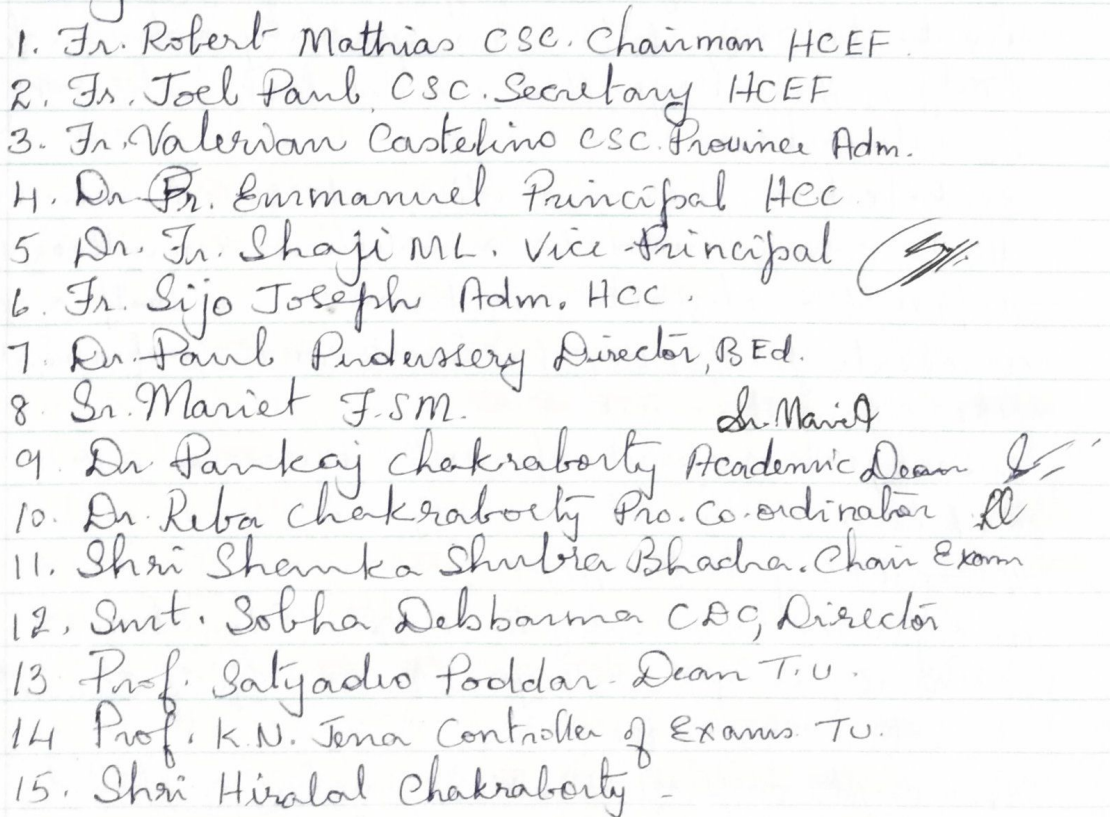 1. Fr. Robert Mathias CSC. Chairman HCEF
2. Fr. Joel Paul CSC. Secretary HCEF
3. Fr. Valerian Castelino CSC. Province Adm.
4. Dr Fr. Emmanuel Principal HCC
5 Dr. Fr. Shaji ML. Vice-Principal
6 Fr. Sijo Joseph Adm. HCC.
7 Dr. Paul Pudussery Director, B Ed.
8 Sr. Mariet F.SM. Sr. Mariet
9. Dr Pankaj Chakraborty Academic Dean
10. Dr. Reba Chakraborty Pro. Co-ordinator
11. Shri Shanka Shubra Bhadra. Chair Exam
12. Smt. Sobha Debbarma CDC, Director
13 Prof. Satyadeo Poddar Dean T.U.
14 Prof. K.N. Jena Controller of Exams TU.
15. Shri Hiralal Chakraborty -